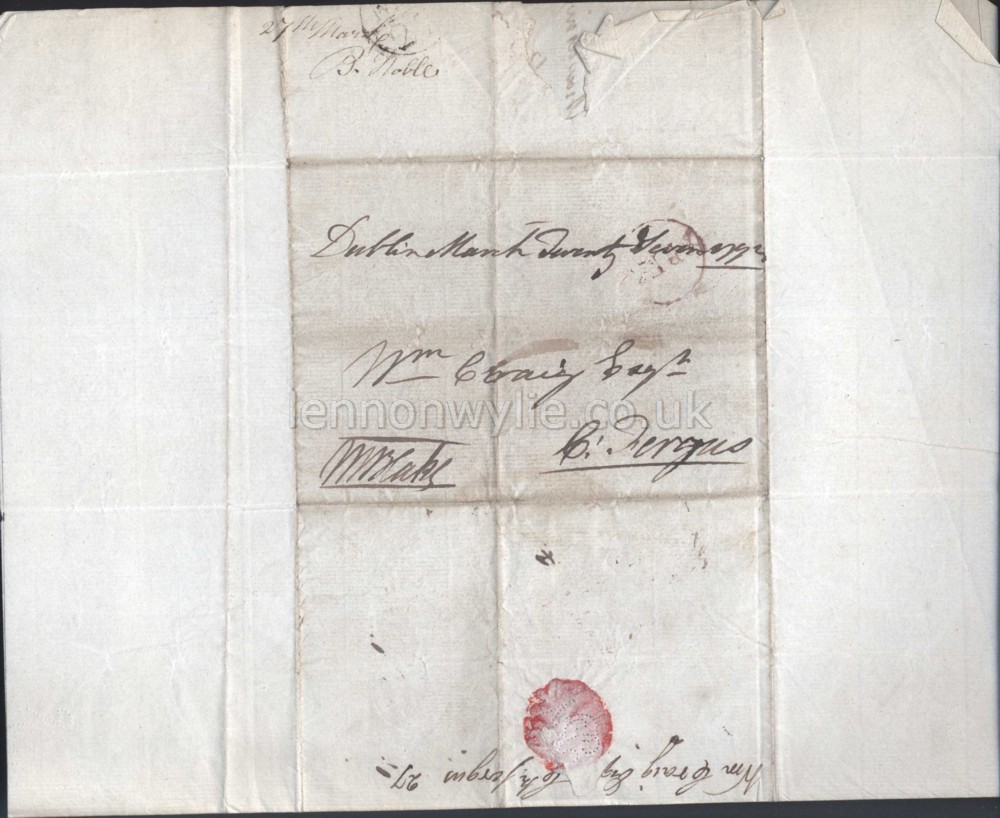 27th March
B. Noble
Dublin March Twenty Seven
Wm Craig Esqr
lennonwylie.co.uk
C: Fergus
Wm Craig Esq Fergus 27